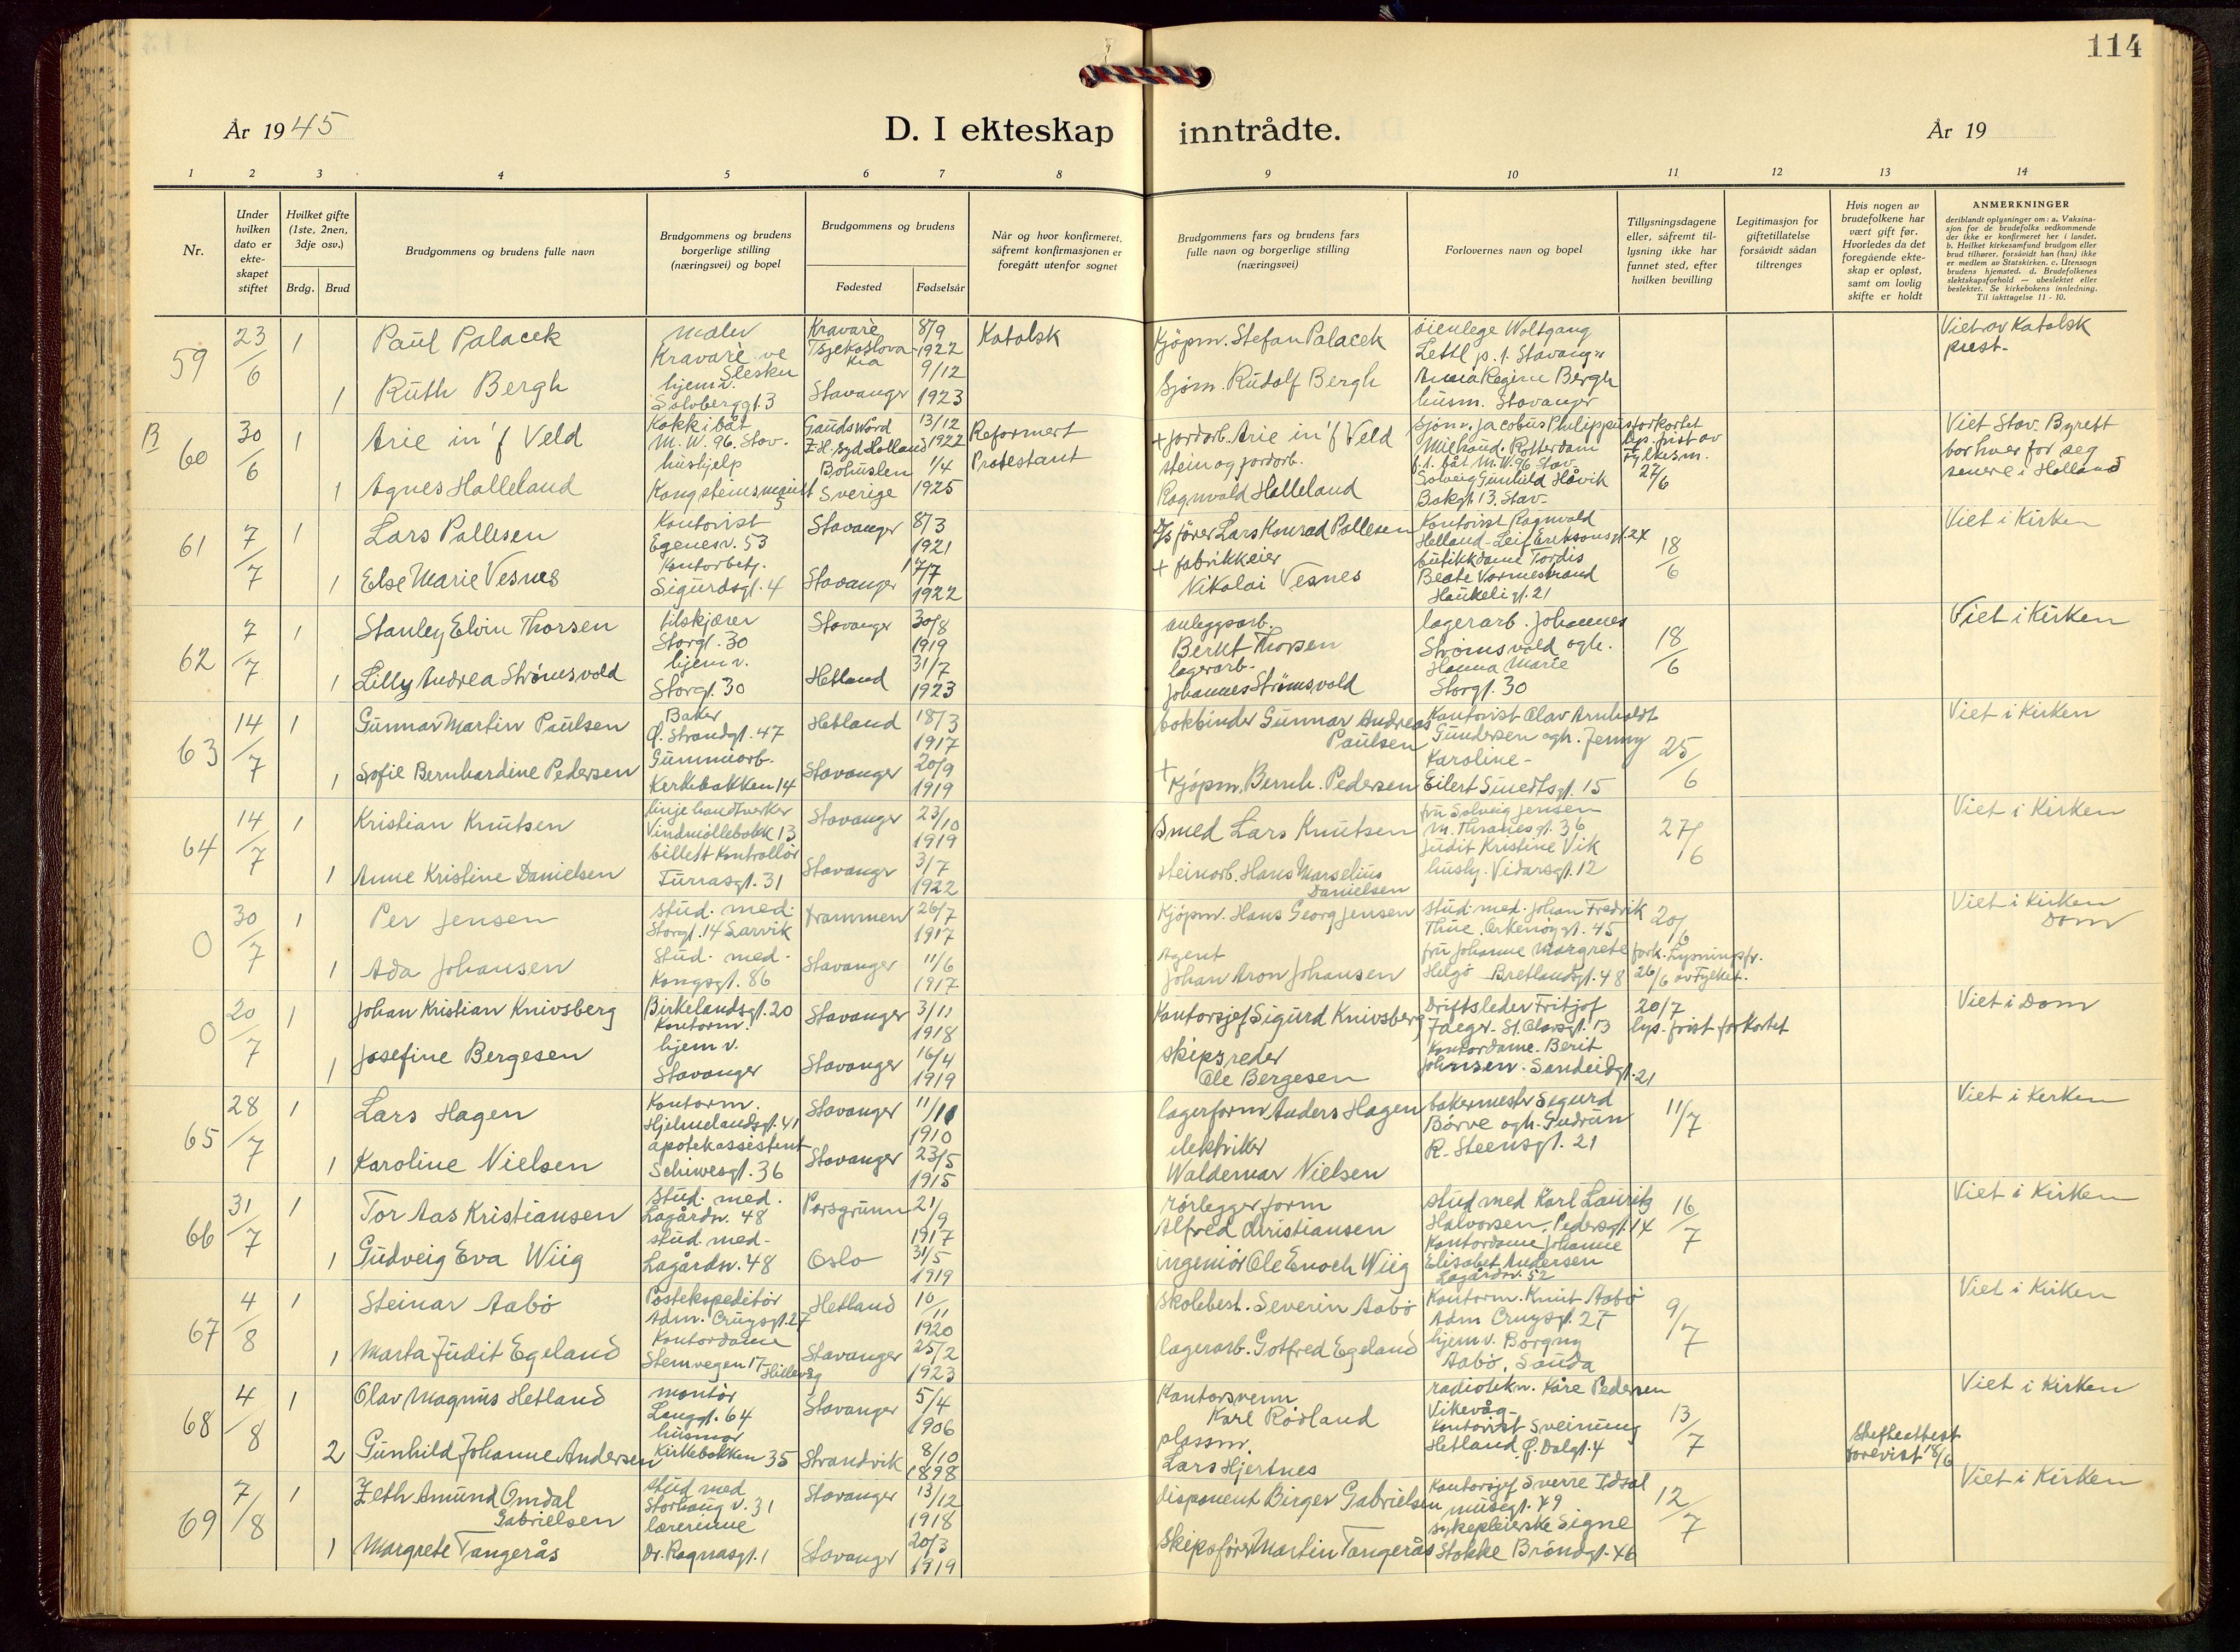 114
År 1945
D. I ekteskap inntrådte.
År 19
1 2 3 4 5 6 7 8 9 10 11 12 13 14
Nr.
Under hvilken dato er ekteskapet stiftet
Hvilket gifte (1ste, 2nen, 3dje osv.)
Brdg. Brud
Brudgommens og brudens fulle navn
Brudgommens og brudens borgerlige stilling (næringsvei) og bopel
Brudgommens og brudens
Fødested
Fødselsår
Når og hvor konfirmeret, såfremt konfirmasjonen er foregått utenfor sognet
Brudgommens fars og brudens fars fulle navn og borgerlige stilling (næringsvei)
Forlovernes navn og bopel
Tillysningsdagene eller, såfremt tillysning ikke har funnet sted, efter hvilken bevilling
Legitimasjon for giftetillatelse forsåvidt sådan tiltrenges
Hvis nogen av brudefolkene har vært gift før. Hvorledes da det foregående ekteskap er opløst, samt om lovlig skifte er holdt
ANMERKNINGER
deriblandt oplysninger om: a. Vaksinasjon for de brudefolks vedkommende der ikke er konfirmeret her i landet. b. Hvilket kirkesamfund brudgom eller brud tilhører, forsåvidt han (hun) ikke er medlem av Statskirken. c. Utensogn brudens hjemsted. d. Brudefolkenes slektskapsforhold — ubeslektet eller beslektet. Se kirkebokens innledning. Til iakttagelse 11 - 10.
59 23/6 1 Paul Palacek
maler Kravarè ve Slesku
Kravarè Tsjekoslovakia 8/9 1922
Katolsk
Kjöpm. Stefan Palacek
öienlege Wolfgang Lettl p.t. Stavanger
Viet av Katolsk prest.
1 Ruth Bergh
hjemv. Solvberggt. 3
Stavanger 9/12 1923
Sjöm. Rudolf Bergh
Anna Regine Bergh husm. Stavanger
B 60 30/6 1 Arie in 't Veld
Kokk i båt M.W. 96. Stav.
Z.H. Syd Holland 13/12 1922
Reformert
+ jordarb. Arie in 't Veld
Sjöm. Jacobus Philippus
Rotterdam p.t. båt M.W. 96 Stav.
forkortet lys. frist av Fylkesm. 27/6
Viet Stav. Byrett bor hver for seg senere i Holland
1 Agnes Halleland
hushjelp
Bohuslen Sverige 1/4 1925
Protestant
stein og jordarb. Ragnvald Halleland
Solveig Gunhild Håvik Bakgt. 13. Stav.
61 7/7 1 Lars Pallesen
Kontorist Egenesv. 53
Stavanger 8/3 1921
förer Lars Konrad Pallesen
Kontorist Ragnvald Helland - Leif Eriksonsgt. 24
18/6
Viet i Kirken
1 Else Marie Vesnes
Kontorbetj. Sigurdsgt. 4
Stavanger 1922
+ fabrikkeier Nikolai Vesnes
butikkdame Tordis Beate Vormestrand Haukeligt. 21
62 7/7 1 Stanley Elvin Thorsen
tilskjærer Storgt. 30
Stavanger 30/8 1919
anleggsarb. Bernt Thorsen
lagerarb. Johannes Strømsvold ogh. Hanna Marie Storgt. 30
18/6
Viet i Kirken
1 Lilly Andrea Strömsvold
hjemv. Storgt. 30
Hetland 31/7 1923
lagerarb. Johannes Strömsvold
63 14/7 1 Gunnar Martin Paulsen
Baker Ö. Strandgt. 47
Hetland 18/3 1917
bokbinder Gunnar Andreas Paulsen
Kontorist Olav Arnholdt Gundersen ogh. Jenny Karoline - Eilert Smedtsgt. 15
25/6
Viet i Kirken
1 Sofie Bernhardine Pedersen
Gummiarb. Kirkebakken 14
Stavanger 20/9 1919
+ Kjöpm. Bernh. Pedersen
64 14/7 1 Kristian Knutsen
linje handtverker Vindmöllebakk 13
Stavanger 23/10 1919
Smed Lars Knutsen
fru Solveig Jensen M. Thranesgt. 36
27/6
Viet i Kirken
1 Anne Kristine Danielsen
billett Kontrollör Turrasgt. 31
Stavanger 3/7 1922
steinarb. Hans Marselius Danielsen
Judit Kristine Vik hushj. Vidarsgt. 12
0 30/7 1 Per Jensen
stud. med. Storgt. 14 Larvik
Drammen 26/7 1917
Kjöpm. Hans Georg Jensen
stud. med. Johan Fredrik Thue. Orkenöygt. 45
20/6
Viet i Kirken Dom
1 Ada Johansen
stud. med. Kongsgt. 86
Stavanger 11/6 1917
Agent Johan Aron Johansen
fru Johanne Margrete Helgö Bretlandsgt. 48
fork. Lysningsfr. 26/6 av Fylket.
0 20/7 1 Johan Kristian Knivsberg
Birkelandsgt. 20 Kontorm.
Stavanger 3/11 1918
Kontorsjef Sigurd Knivsberg
Driftsleder Fritjof Jaeger - St. Olavsgt. 13
20/7 lys. frist forkortet
Viet i Dom
1 Josefine Bergesen
hjemv. Stavanger
Stavanger 16/4 1919
skipsreder Ole Bergesen
Kontordame. Berit Johnsen. Sandeidgt. 21
65 28/7 1 Lars Hagen
Kontorm. Hjelmelandsgt. 41
Stavanger 1910
lagerform. Anders Hagen
bakermester Sigurd Börve ogh. Gudrun R. Steensgt. 21
11/7
Viet i Kirken
1 Karoline Nielsen
apotekassistent Schiwesgt. 36
Stavanger 23/5 1915
elektriker Waldemar Nielsen
66 31/7 1 Tor Aas Kristiansen
stud. med. Lagårdsv. 48
Porsgrunn 21/9 1917
rörlegger form Alfred Christiansen
stud med Karl Lauritz Halvorsen, Pedersgt. 14
16/7
Viet i Kirken
1 Gudveig Eva Wiig
stud. med. Lagårdsv. 48
Oslo 31/5 1919
ingeniör Ole Enoch Wiig
Kontordame Johanne Elisabet Andersen Lagårdsv. 52
67 4/8 1 Steinar Aabö
Postekspeditör Adm. Cruysgt. 27
Hetland 10/11 1920
skolebest. Severin Aabö
Kontorm. Knut Aabö Adm Cruysgt. 27
9/7
Viet i Kirken
1 Marta Judit Egeland
Kontordame Stemvegen 17 Hillevåg
Stavanger 25/2 1923
lagerarb. Gotfred Egeland
hjemv. Borgny Aabö, Sauda
68 4/8 1 Olav Magnus Hetland
montör Langgt. 64
Stavanger 5/4 1906
Kontorsvenn Karl Rödland
radiotekn. Kåre Pedersen Vikevåg
13/7
Viet i Kirken
2 Gunhild Johanne Andersen
husmor Kirkebakken 35
Strandvik 8/10 1898
plassm. Lars Hjertnes
Kontorist Sveinung Hetland Ö. Dalgt. 4
Skifteattest forevist 18/6
69 7/8 1 Zeth Amund Omdal Gabrielsen
stud med Storhaug v. 31
Stavanger 13/12 1918
disponent Birger Gabrielsen
Kontorsjef Sverre Idsal musegt. 79
12/7
Viet i Kirken
1 Margrete Tangerås
lærerinne Dr. Ragnasgt. 1
Stavanger 20/3 1919
Skipsförer Martin Tangerås
sykepleierske Signe Stokke Bröndgt. 46